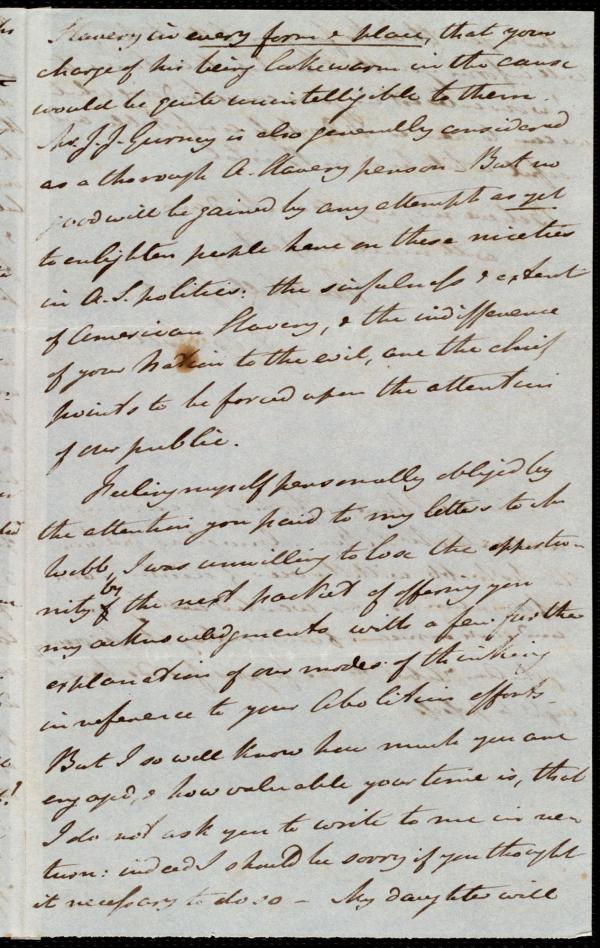 Slavery in every form & place, that your
charge of his being lukewarm in the cause
would be quite unintelligible to them.
Mr. J. J. Gurney is also generally considered
as a thorough A. Slavery person - But no
good will be gained by any attempt as yet
to enlighten people here on these niceties
in A.S. politics: the sinfulness & extent
of American Slavery, & the indifference
of your nation to the evil, are the chief
points to be forced upon the attention
of our public.
Feeling myself personally obliged by
the attention you paid to my letters to
Webb, I was unwilling to lose the opportu-
nity by the next packet of offering you
my acknowledgments with a few further
explanation of our modes of thinking
in reference to your Abolition efforts -
But I so well know how much you are
engaged, & how valuable your time is, that
I do not ask you to write to me in re-
turn: indeed I should be sorry if you thought
it necessary to do so - My daughter will